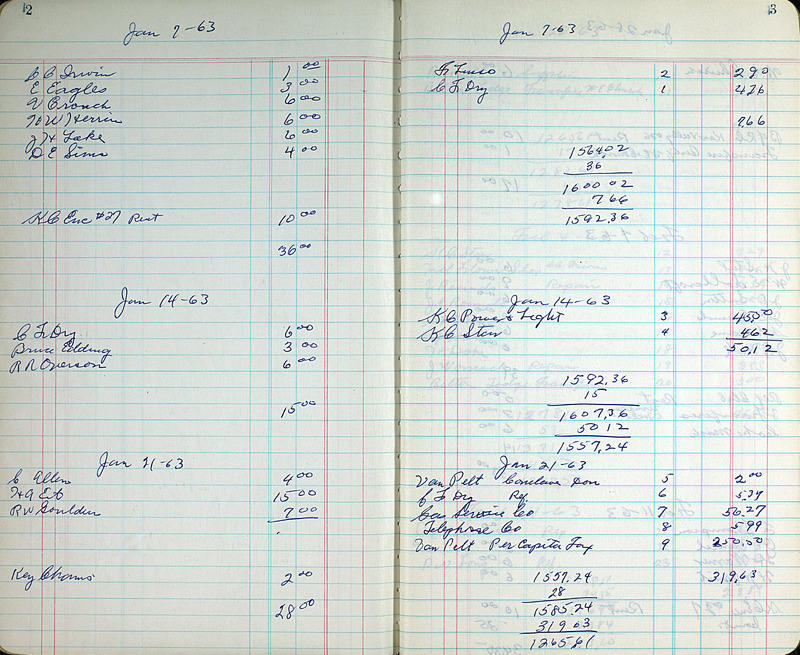 2
Jan 7-63
C C Irwin 1 00
E Eagles 3 00
V Cronch 6 00
H W Herrin 6 00
J H Lake 6 00
D E Sims 4 00
K C Enc #27 Rent 10 00
36 00
Jan 14-63
C F Dry 6 00
Bruce Edding 3 00
R R Overson 6 00
15 00
Jan 21-63
C Allen 4 00
15 00
R W Goulden 7 00
Key Chains 2 00
28 00
3
Jan 7-63
2 290
C F Dry 1 476
766
1564.02
36
1600 02
7 66
1592.36
Jan 14-63
K C Power & Light 3 45.50
K C Star 4 462
50,12
1592.36
15
1607,36
50 12
1557,24
Jan 21-63
Van Pelt Conclave Don 5 2 00
C F Dry 6 5.37
Gas Service Co 7 50.27
Telephone Co 8 5 99
Van Pelt Per Capita Tax 9 250.00
319,63
1557.24
28
1585.24
319 63
1265 61